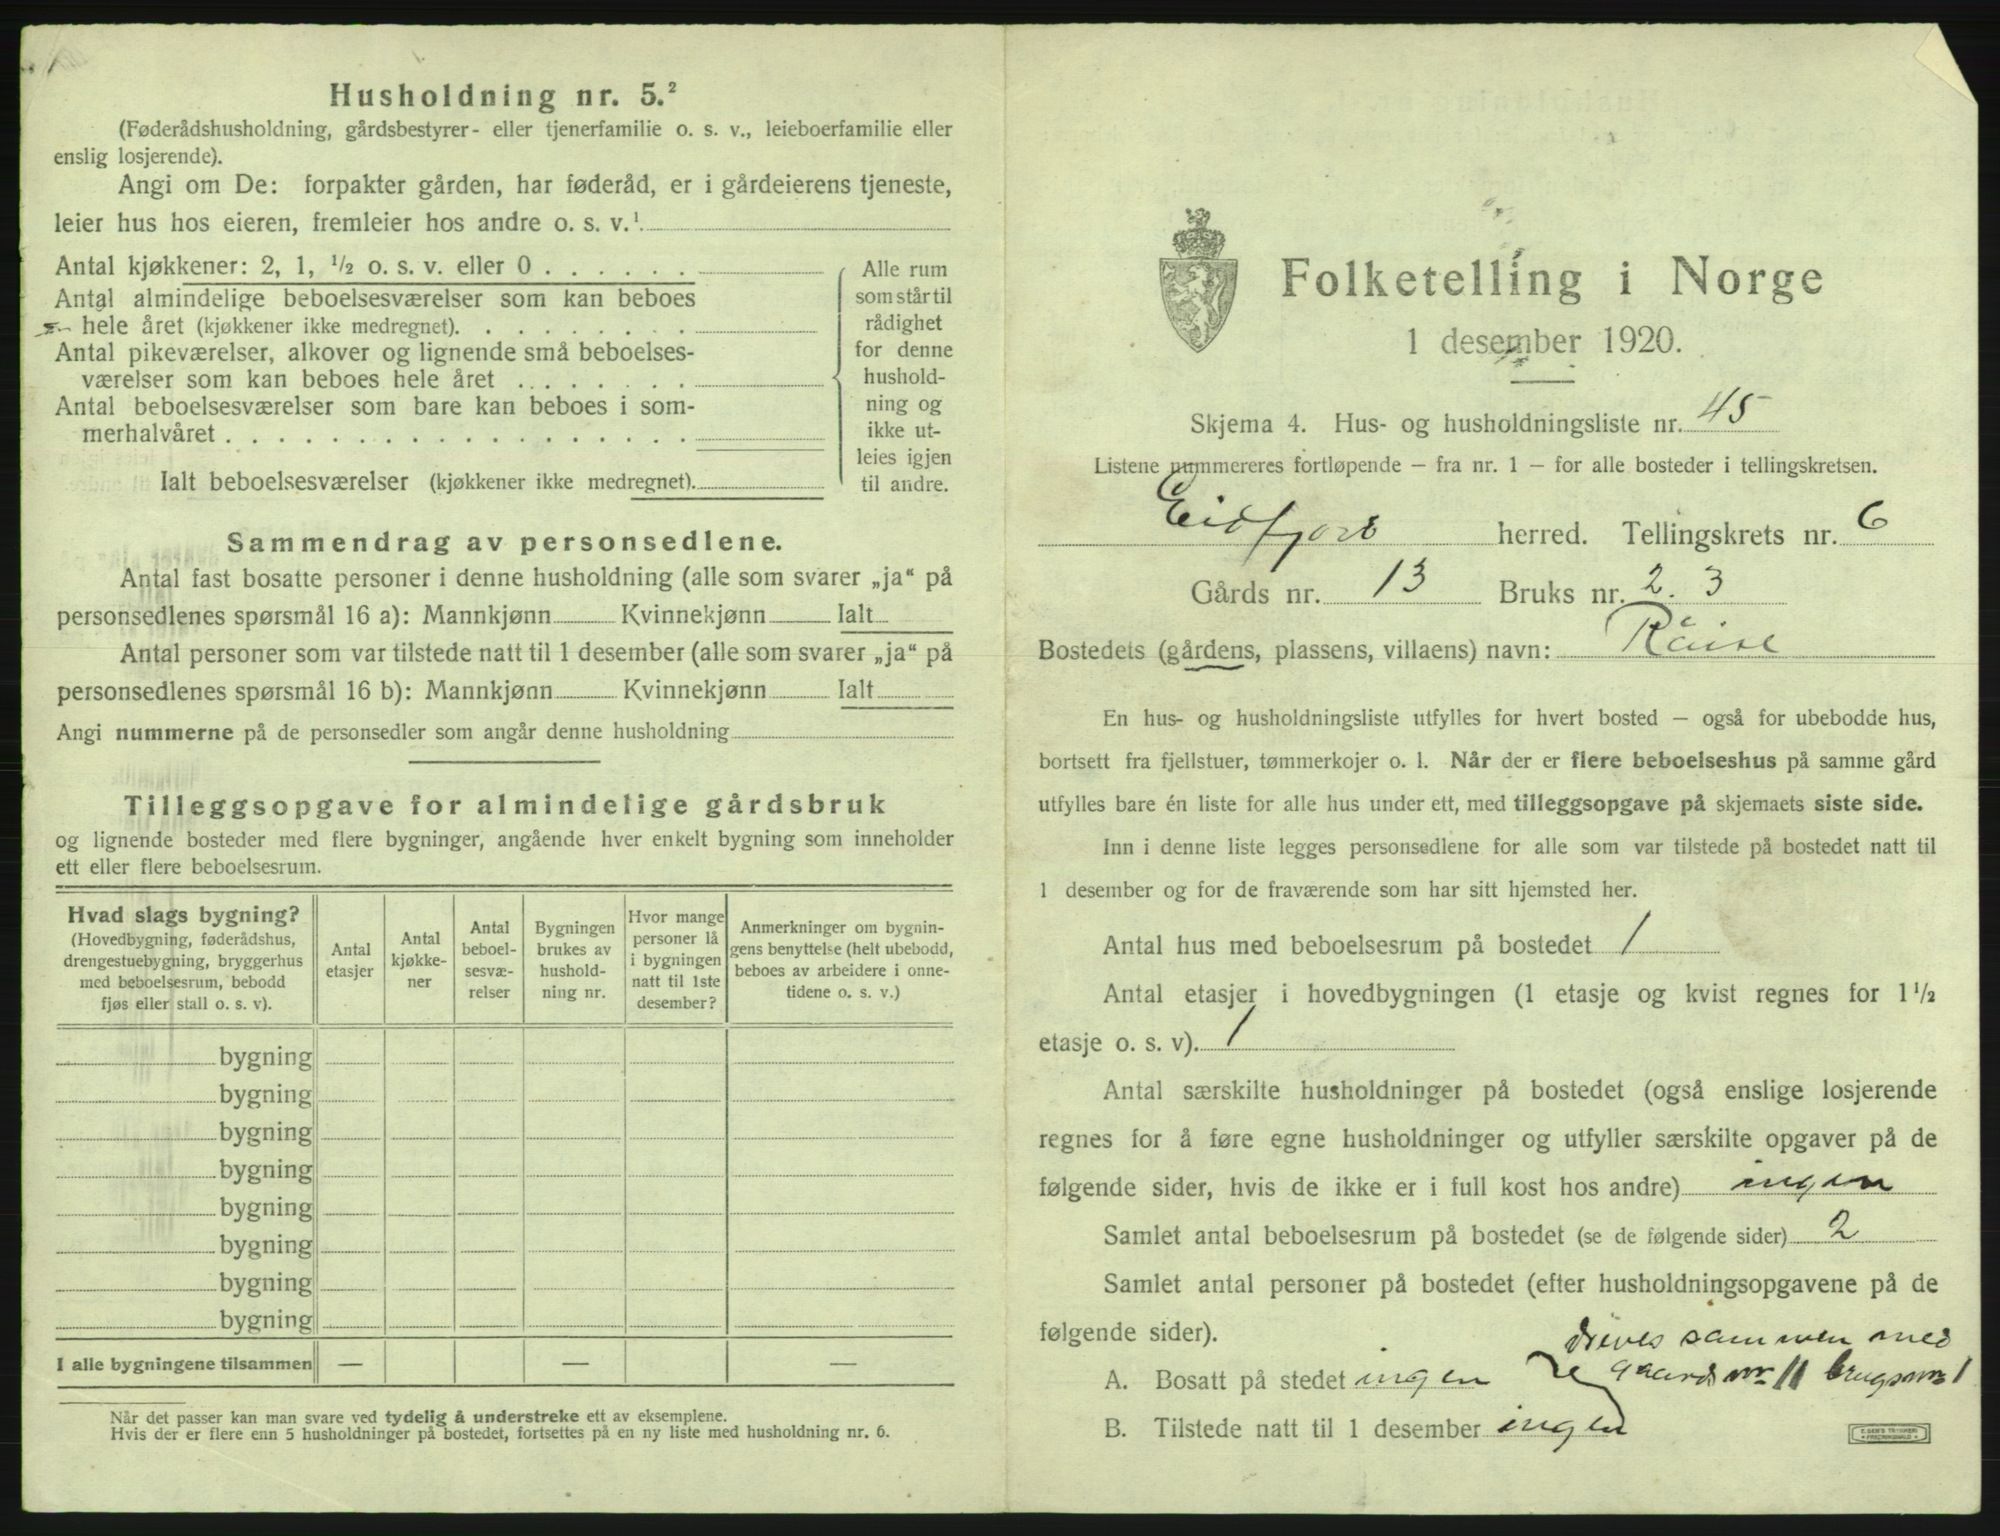 Husholdning nr. 5.²
(Føderådshusholdning, gårdsbestyrer- eller tjenerfamilie o. s. v., leieboerfamilie eller
enslig losjerende).
Angi om De: forpakter gården, har føderåd, er i gårdeierens tjeneste,
leier hus hos eieren, fremleier hos andre o. s. v.¹
Antal kjøkkener: 2, 1, ½ o. s. v. eller 0
Antal almindelige beboelsesværelser som kan beboes
hele året (kjøkkener ikke medregnet).
Antal pikeværelser, alkover og lignende små beboelses-
værelser som kan beboes hele året
Antal beboelsesværelser som bare kan beboes i som-
merhalvåret
Ialt beboelsesværelser (kjøkkener ikke medregnet).
Alle rum
som står til
rådighet
for denne
hushold-
ning og
ikke ut-
leies igjen
til andre.
Sammendrag av personsedlene.
Antal fast bosatte personer i denne husholdning (alle som svarer „ja“ på
personsedlenes spørsmål 16 a): Mannkjønn Kvinnekjønn Ialt
Antal personer som var tilstede natt til 1 desember (alle som svarer „ja“ på
personsedlenes spørsmål 16 b): Mannkjønn Kvinnekjønn Ialt
Angi nummerne på de personsedler som angår denne husholdning
Tilleggsopgave for almindelige gårdsbruk
og lignende bosteder med flere bygninger, angående hver enkelt bygning som inneholder
ett eller flere beboelsesrum.
Hvad slags bygning?
(Hovedbygning, føderådshus,
drengestuebygning, bryggerhus
med beboelsesrum, bebodd
fjøs eller stall o. s. v).
Antal
etasjer
Antal
kjøkke-
ner
Antal
beboel-
sesvæ-
relser
Bygningen
brukes av
hushold-
ning nr.
Hvor mange
personer lå
i bygningen
natt til 1ste
desember?
Anmerkninger om bygnin-
gens benyttelse (helt ubebodd,
beboes av arbeidere i onne-
tidene o. s. v.)
bygning
bygning
bygning
bygning
bygning
bygning
bygning
bygning
I alle bygningene tilsammen — — —
Når det passer kan man svare ved tydelig å understreke ett av eksemplene.
Hvis der er flere enn 5 husholdninger på bostedet, fortsettes på en ny liste med husholdning nr. 6.
Folketelling i Norge
1 desember 1920.
Skjema 4. Hus- og husholdningsliste nr. 45
Listene nummereres fortløpende — fra nr. 1 — for alle bosteder i tellingskretsen.
Eidfjord herred. Tellingskrets nr. 6
Gårds nr. 13 Bruks nr. 2. 3
Bostedets (gårdens, plassens, villaens) navn:
En hus- og husholdningsliste utfylles for hvert bosted — også for ubebodde hus,
bortsett fra fjellstuer, tømmerkojer o. l. Når der er flere beboelseshus på samme gård
utfylles bare én liste for alle hus under ett, med tilleggsopgave på skjemaets siste side.
Inn i denne liste legges personsedlene for alle som var tilstede på bostedet natt til
1 desember og for de fraværende som har sitt hjemsted her.
Antal hus med beboelsesrum på bostedet 1
Antal etasjer i hovedbygningen (1 etasje og kvist regnes for 1½
etasje o. s. v). 1
Antal særskilte husholdninger på bostedet (også enslige losjerende
regnes for å føre egne husholdninger og utfyller særskilte opgaver på de
følgende sider, hvis de ikke er i full kost hos andre) ingen
Samlet antal beboelsesrum på bostedet (se de følgende sider) 2
Samlet antal personer på bostedet (efter husholdningsopgavene på de
følgende sider).
drives sammen med
gaards nr 11 brugs nr 1
A. Bosatt på stedet ingen
B. Tilstede natt til 1 desember ingen